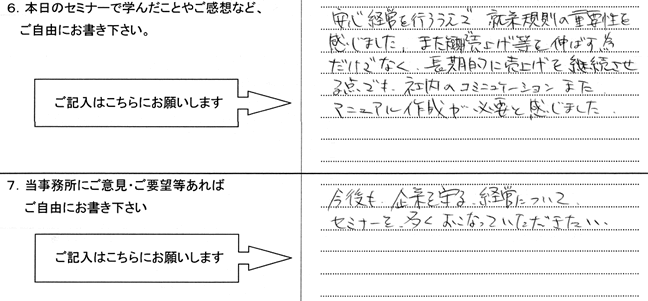 6. 本日のセミナーで学んだことやご感想など、
ご自由にお書き下さい。
ご記入はこちらにお願いします
安心経営を行ううえで 就業規則の重要性を
感じました。また 売上げ等を伸ばす為
だけでなく、長期的に売上げを継続させ
る点でも、社内のコミュニケーション また
マニュアル作成が必要と感じました
7. 当事務所にご意見・ご要望等あれば
ご自由にお書き下さい
ご記入はこちらにお願いします
今後も 企業を守る 経営について
セミナーを 多く おこなっていただきたい。